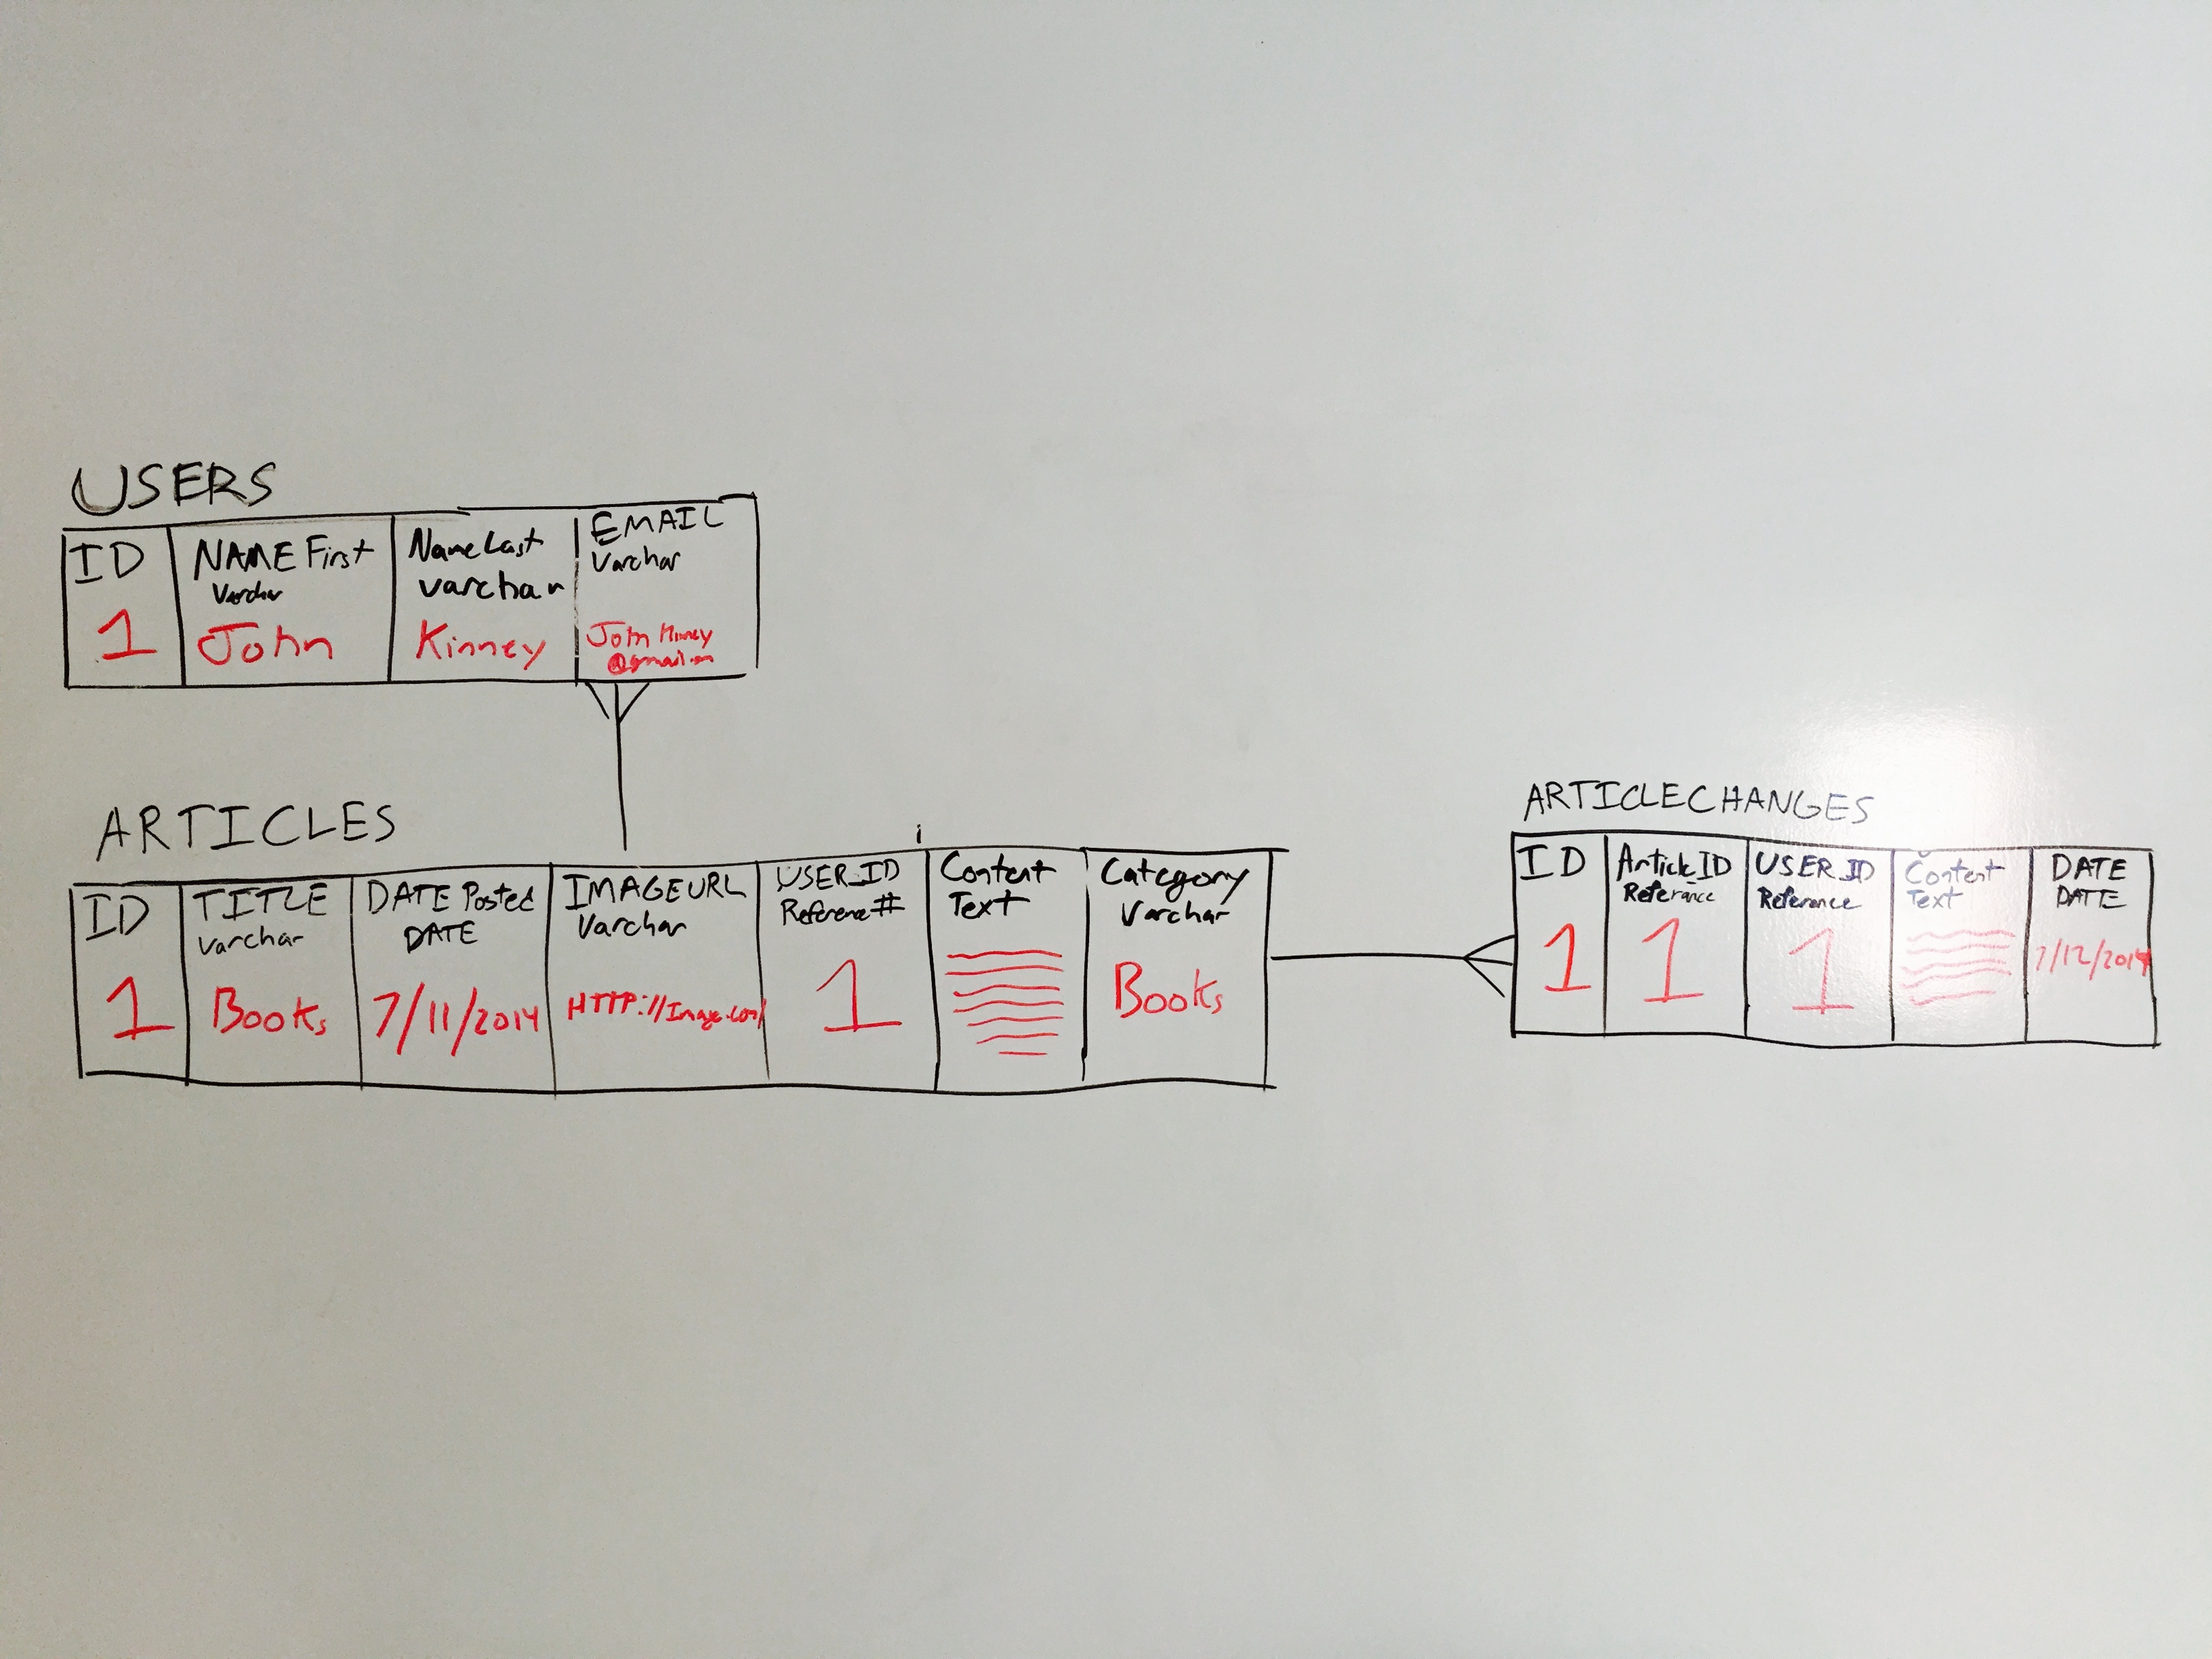 USERS
ID
NAME First
Varchar
Name Last
varchar
EMAIL
Varchar
1
John
Kinney
John Kinney
@gmail.com
ARTICLES
ID
TITLE
Varchar
DATE Posted
DATE
IMAGEURL
Varchar
USER_ID
Reference #
Content
Text
Category
Varchar
1
Books
7/11/2014
HTTP://Image.com/
1
Books
ARTICLECHANGES
ID
Article_ID
Reference
USER_ID
Referance
Content
Text
DATE
DATE
1
1
1
7/12/2014